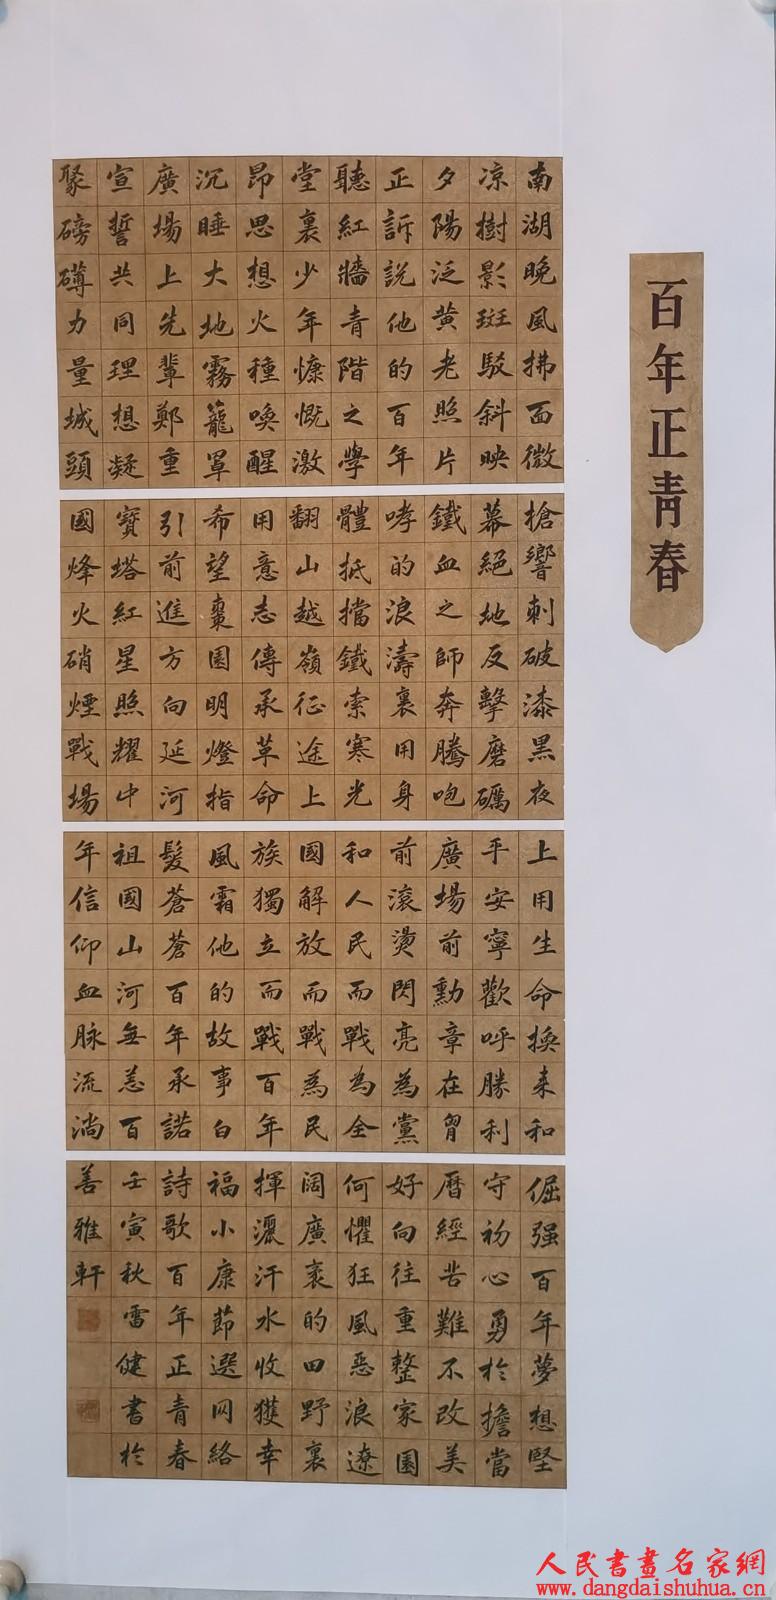 百年正青春
南湖晚風拂面微
凉樹影斑駁斜映
夕陽泛黄老照片
正訴説他的百年
聽紅牆青階之學
堂裏少年慷慨激
昂思想火種喚醒
沉睡大地霧籠罩
廣場上先輩鄭重
宣誓共同理想凝
聚磅礴力量城頭
槍響刺破漆黑夜
幕絕地反擊磨礪
鐵血之師奔騰咆
哮的浪濤裏用身
體抵擋鐵索寒光
翻山越嶺征途上
用意志傳承革命
希望棗園明燈指
引前進方向延河
寶塔紅星照耀中
國烽火硝煙戰場
上用生命換来和
平安寧歡呼勝利
廣場前勳章在胷
前滾燙閃亮為黨
和人民而戰為全
國解放而戰為民
族獨立而戰百年
風霜他的故事白
髮蒼蒼百年承諾
祖國山河無恙百
年信仰血脉流淌
倔强百年夢想堅
守初心勇於擔當
曆經苦難不改美
好向往重整家園
何懼狂風惡浪遼
闊廣袤的田野裏
揮灑汗水收獲幸
福小康節選网絡
詩歌百年正青春
壬寅秋雷健書於
善雅軒
人民書畫名家網
www.dangdaishuhua.cn